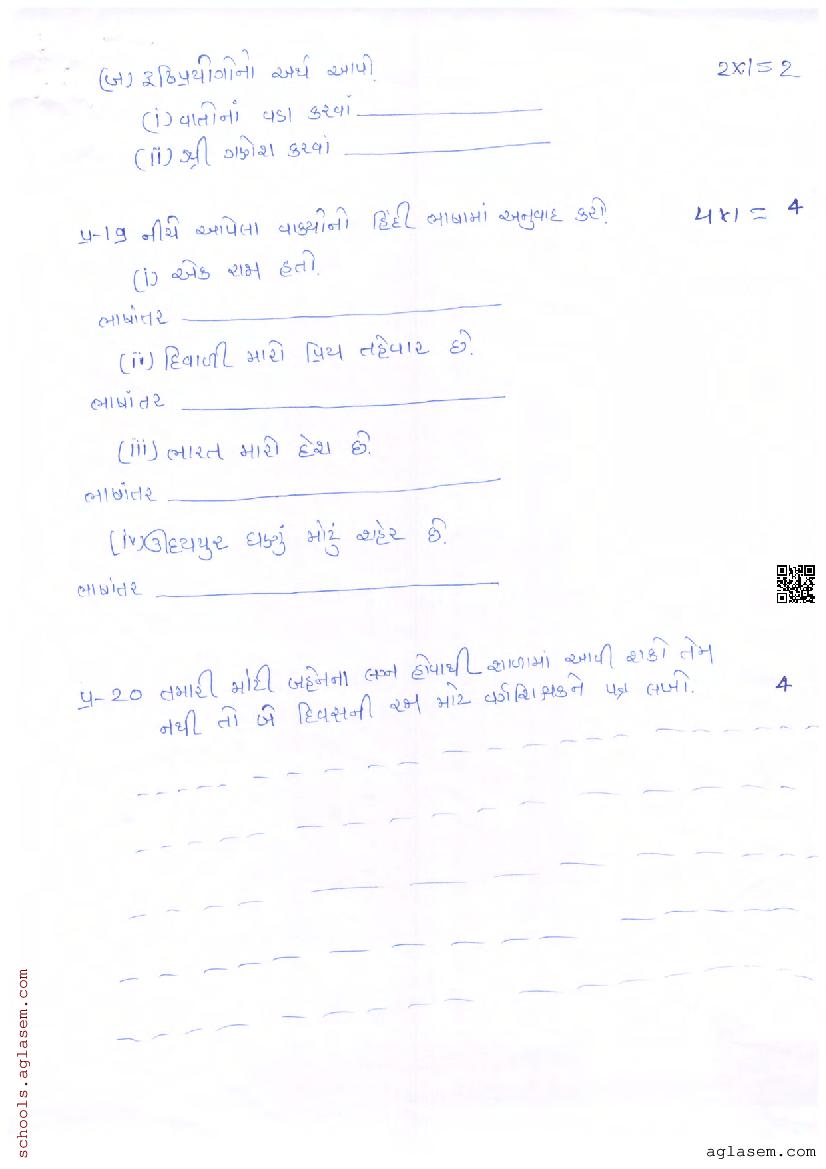 (બ) રૂઢિપ્રયોગોનો અર્થ આપો. 2x1=2
(i) વાતોનાં વડા કરવાં
(ii) શ્રી ગણેશ કરવાં
પ્ર-19 નીચે આપેલા વાક્યોનો હિંદી ભાષામાં અનુવાદ કરો. 4x1= 4
(i) એક રામ હતો.
ભાષાંતર
(ii) દિવાળી મારો પ્રિય તહેવાર છે.
ભાષાંતર
(iii) ભારત મારો દેશ છે.
ભાષાંતર
(iv) ઊદયપુર ઘણું મોટું શહેર છે.
ભાષાંતર
પ્ર-20 તમારી મોટી બહેનના લગ્ન હોવાથી શાળામાં આવી શકો તેમ 4
નથી તો બે દિવસની રજા માટે વર્ગશિક્ષકને પત્ર લખો.
schools.aglasem.com
aglasem.com